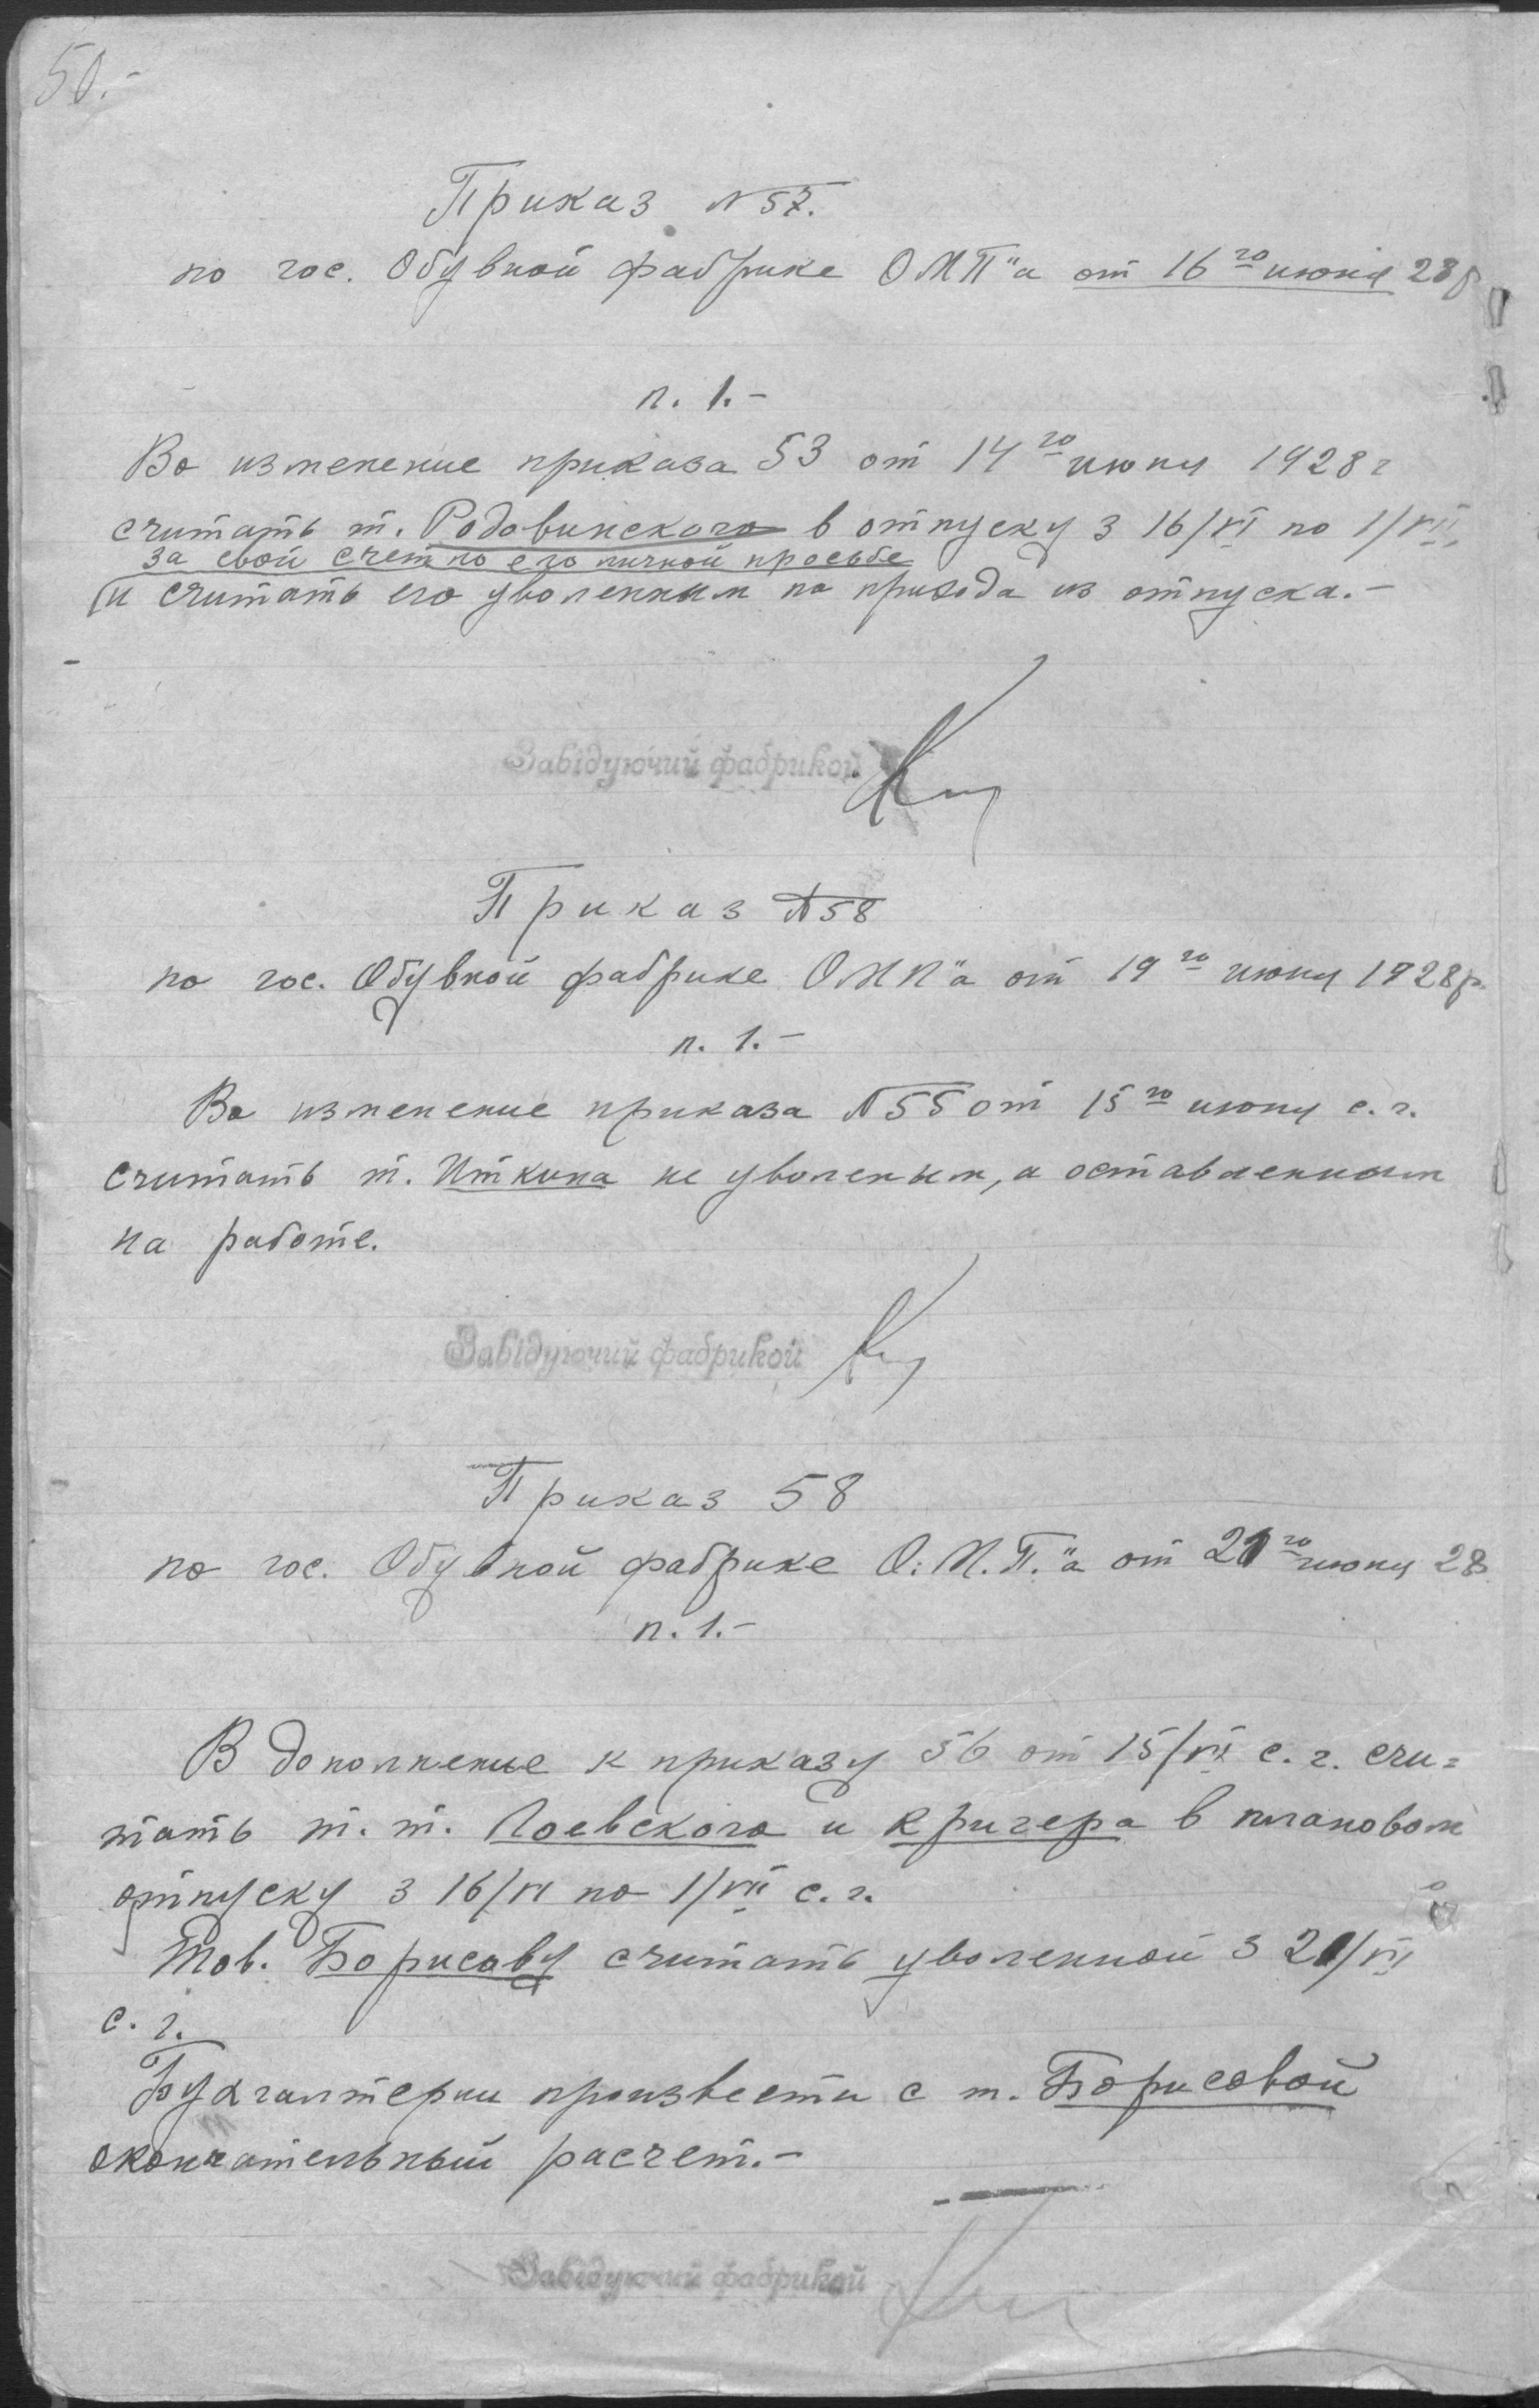 50.-
Приказ № 57.
по гос. Обувной фабрике ОМП"а от 16го июня 28 р
п. 1.-
Во изменение приказа 53 от 14го июня 1928 г
считать т. Родовинского в отпуску з 16/VI по 1/VII,
за свой счет по его личной просьбе
и считать его уволенным по прихода из отпуска.-
Завідуючий фабрикой
Приказ № 58
по гос. Обувной фабрике ОМП"а от 19го июня 1928 р.
п. 1.-
Во изменение приказа № 55 от 15го июня с. г.
считать т. Иткина не уволеным, а оставленным
на работе.
Завідуючий фабрикой
Приказ 58
по гос. Обувной фабрике О.М.П."а от 21го июня 28
п. 1.-
В дополнение к приказу 56 от 15/VI с. г. счи=
тать т. т. Лоевского и Кригера в плановом
отпуску з 16/VI по 1/VII с. г.
Тов. Борисову считать уволенной з 21/VI
с. г.
Бухгалтерии произвести с т. Борисовой
окончательный расчет.-
Завідуючий фабрикой